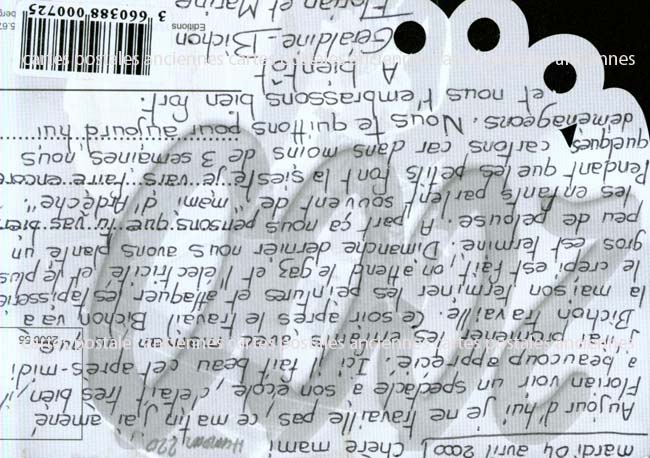 mardi 04 avril 2000
Chère mami
Aujourd'hui je ne travaille pas, ce matin j'ai amené
Florian voir un spectacle à son école, c'était très bien, il
a beaucoup apprécié. Ici il fait beau cet après-midi
je vais promener les enfants
Bichon travaille. Ce soir après le travail Bichon va à
la maison terminer les peintures et attaquer les tapisseries
le crépi est fait, on attend le gaz et l'électricité et le plus
gros est terminé. Dimanche dernier nous avons planté un
peu de pelouse. A part ça nous pensons que tu vas bien
les enfants parlent souvent de "mami d'Adèche".
Pendant que les petits font la sieste je vais faire encore
quelques cartons car dans moins de 3 semaines nous
déménageons. Nous te quittons pour aujourd'hui
et nous t'embrassons bien fort.
A bientôt
Géraldine - Bichon
Florian et Marine
Editions
3 660388 000725
cartes postales anciennes cartes postales anciennes cartes postales anciennes
cartes postales anciennes cartes postales anciennes cartes postales anciennes